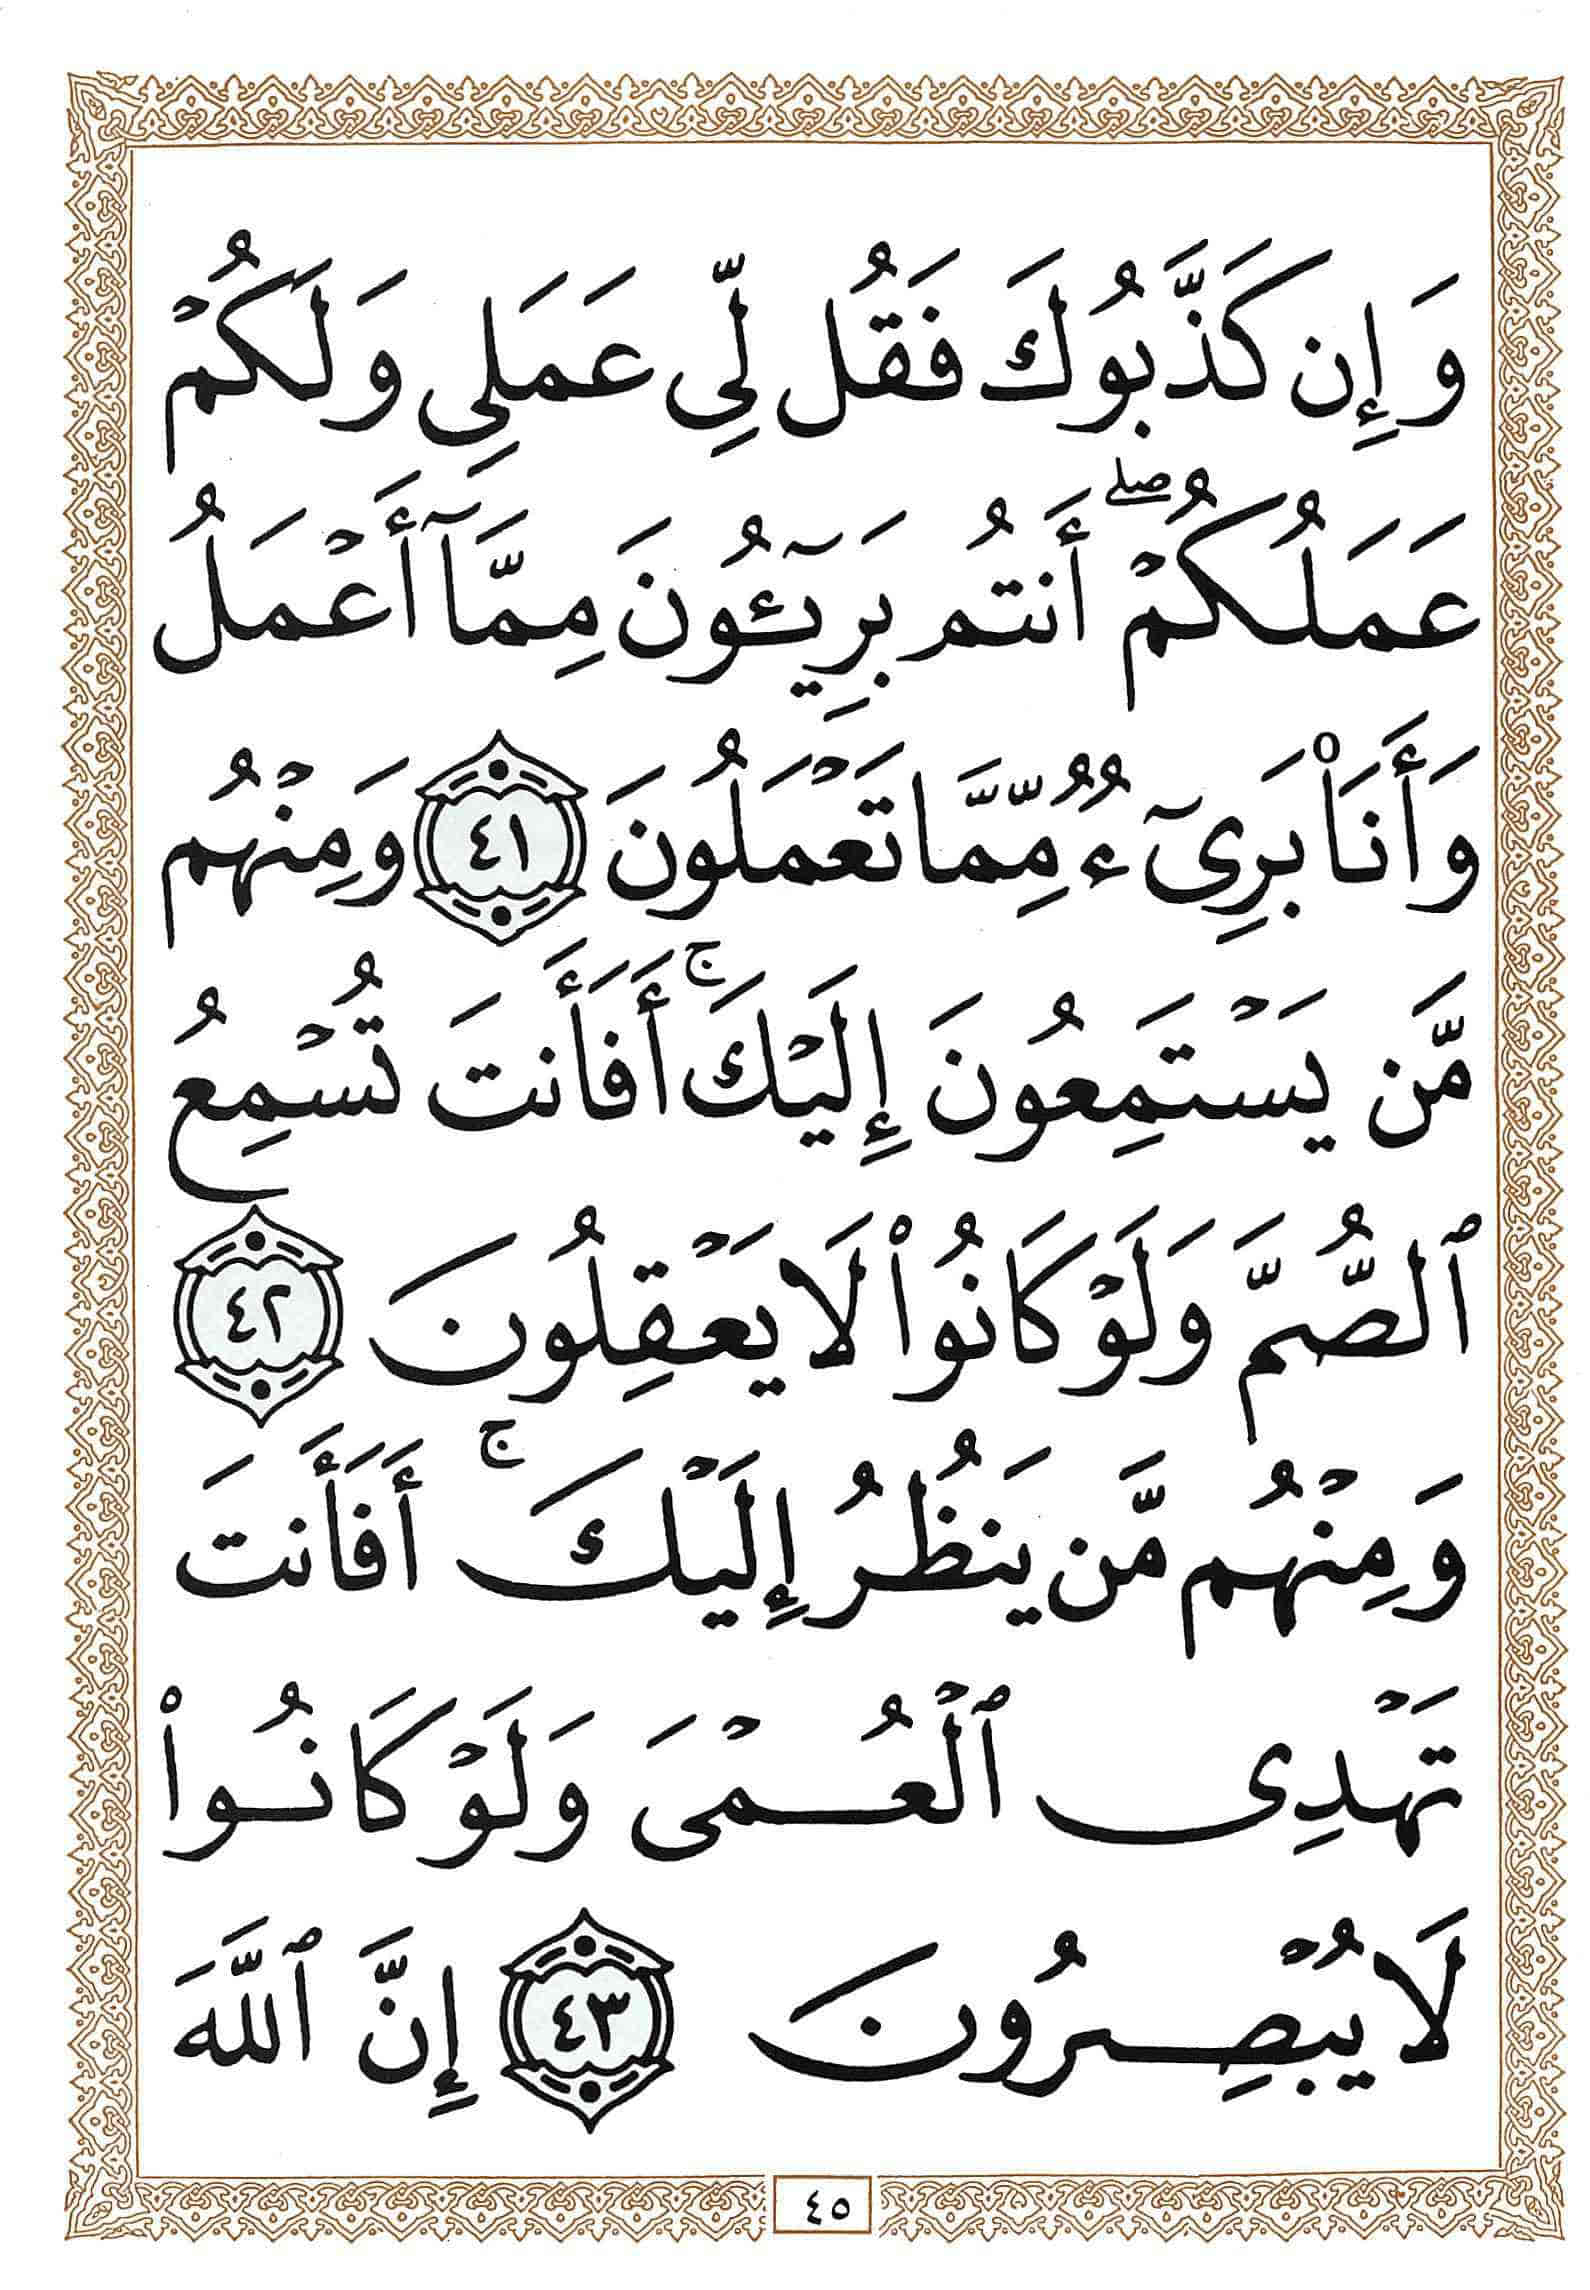 وَإِن كَذَّبُوكَ فَقُل لِّى عَمَلِى وَلَكُمْ
عَمَلُكُمْ ۖ أَنتُم بَرِيٓـُٔونَ مِمَّآ أَعْمَلُ
وَأَنَا۠ بَرِىٓءٌ مِّمَّا تَعْمَلُونَ ٤١ وَمِنْهُم
مَّن يَسْتَمِعُونَ إِلَيْكَ ۚ أَفَأَنتَ تُسْمِعُ
ٱلصُّمَّ وَلَوْ كَانُوا۟ لَا يَعْقِلُونَ ٤٢
وَمِنْهُم مَّن يَنظُرُ إِلَيْكَ ۚ أَفَأَنتَ
تَهْدِى ٱلْعُمْىَ وَلَوْ كَانُوا۟
لَا يُبْصِرُونَ ٤٣ إِنَّ ٱللَّهَ
٤٥